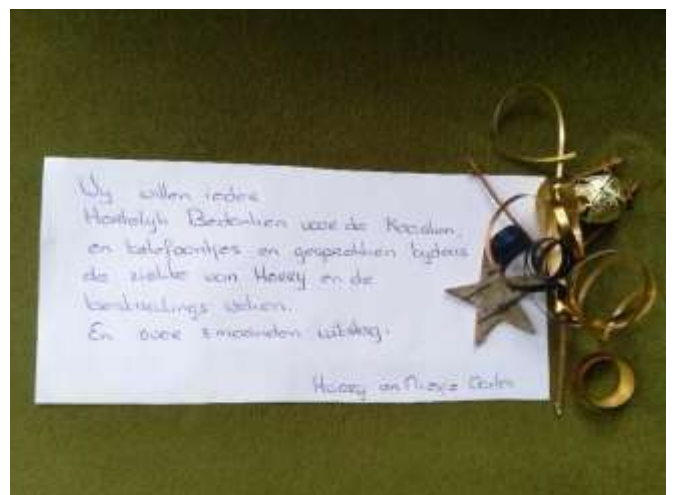 Wy willen ieder
Hartelyk Bedanken voor de Kaarten,
en telefoontjes en gesprekken tydens
de ziekte van Harry en de
bestralings weken.
En over 3 maanden uitslag.
Harry en